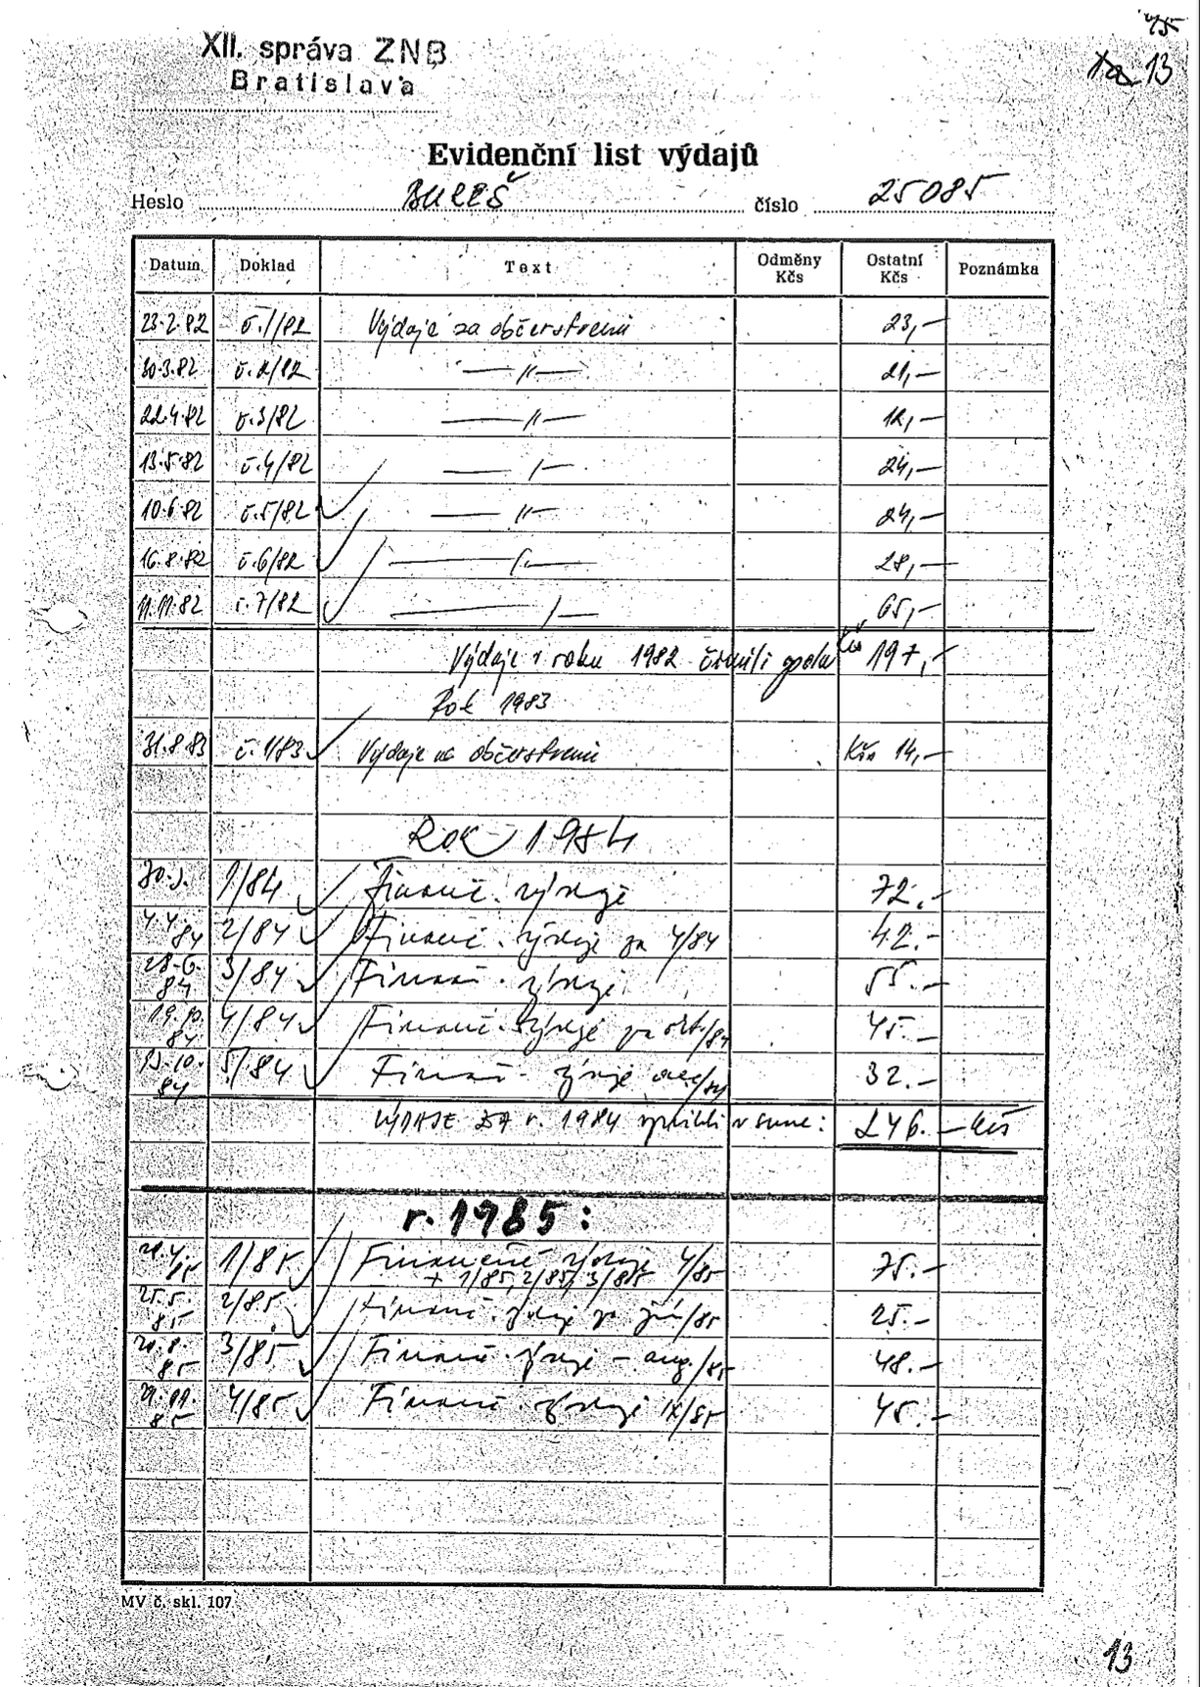 XII. správa ZNB
Bratislava
13
Evidenční list výdajů
Heslo BUREŠ číslo 25085
Datum Doklad Text Odměny Kčs Ostatní Kčs Poznámka
23.2.82 č.1/82 Výdaje za občerstvení 23,—
30.3.82 č.2/82 —〃— 21,—
22.4.82 č.3/82 —〃— 12,—
13.5.82 č.4/82 —〃— 24,—
10.6.82 č.5/82 —〃— 24,—
16.8.82 č.6/82 —〃— 28,—
11.11.82 č.7/82 —〃— 65,—
Výdaje v roku 1982 činili Kčs 197,—
Rok 1983
31.8.83 č.1/83 Výdaje na občerstvení Kčs 14,—
Rok 1984
1/84 Financ. výdaje 72.—
4.4.84 2/84 Financ. výdaje za 4/84 42.—
28.6.84 3/84 Financ. výdaje 55.—
84 4/84 Financ. výdaje za okt./84 45.—
84 5/84 Financ. výdaje dec/84 32.—
VÝDAJE ZA r. 1984 v sume: 246.— Kčs
r. 1985:
85 1/85 Finančné výdaje 4/85 75.—
+ 1/85, 2/85, 3/85
25.5.85 2/85 Financ. výdaje za jún/85 25.—
20.8.85 3/85 Financ. výdaje – aug./85 48.—
85 4/85 Financ. výdaje IX/85 45.—
MV č. skl. 107
13